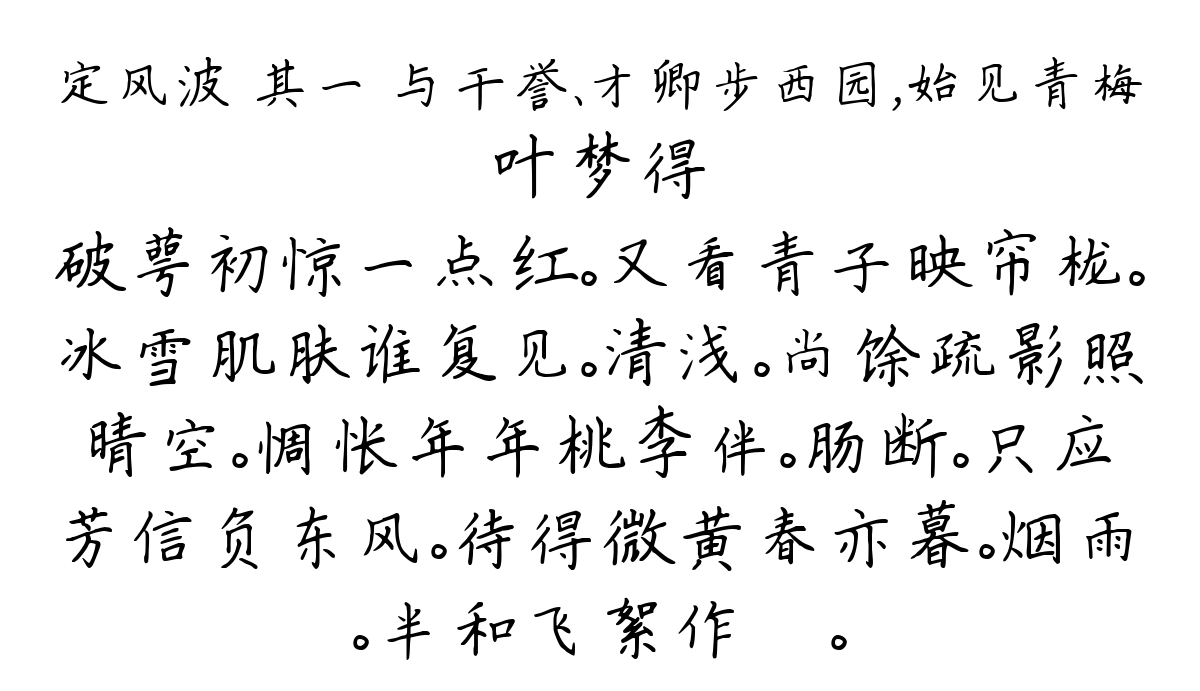 定风波 其一 与干誉、才卿步西园,始见青梅
叶梦得
破萼初惊一点红。又看青子映帘栊。
冰雪肌肤谁复见。清浅。尚馀疏影照
晴空。惆怅年年桃李伴。肠断。只应
芳信负东风。待得微黄春亦暮。烟雨
。半和飞絮作 。